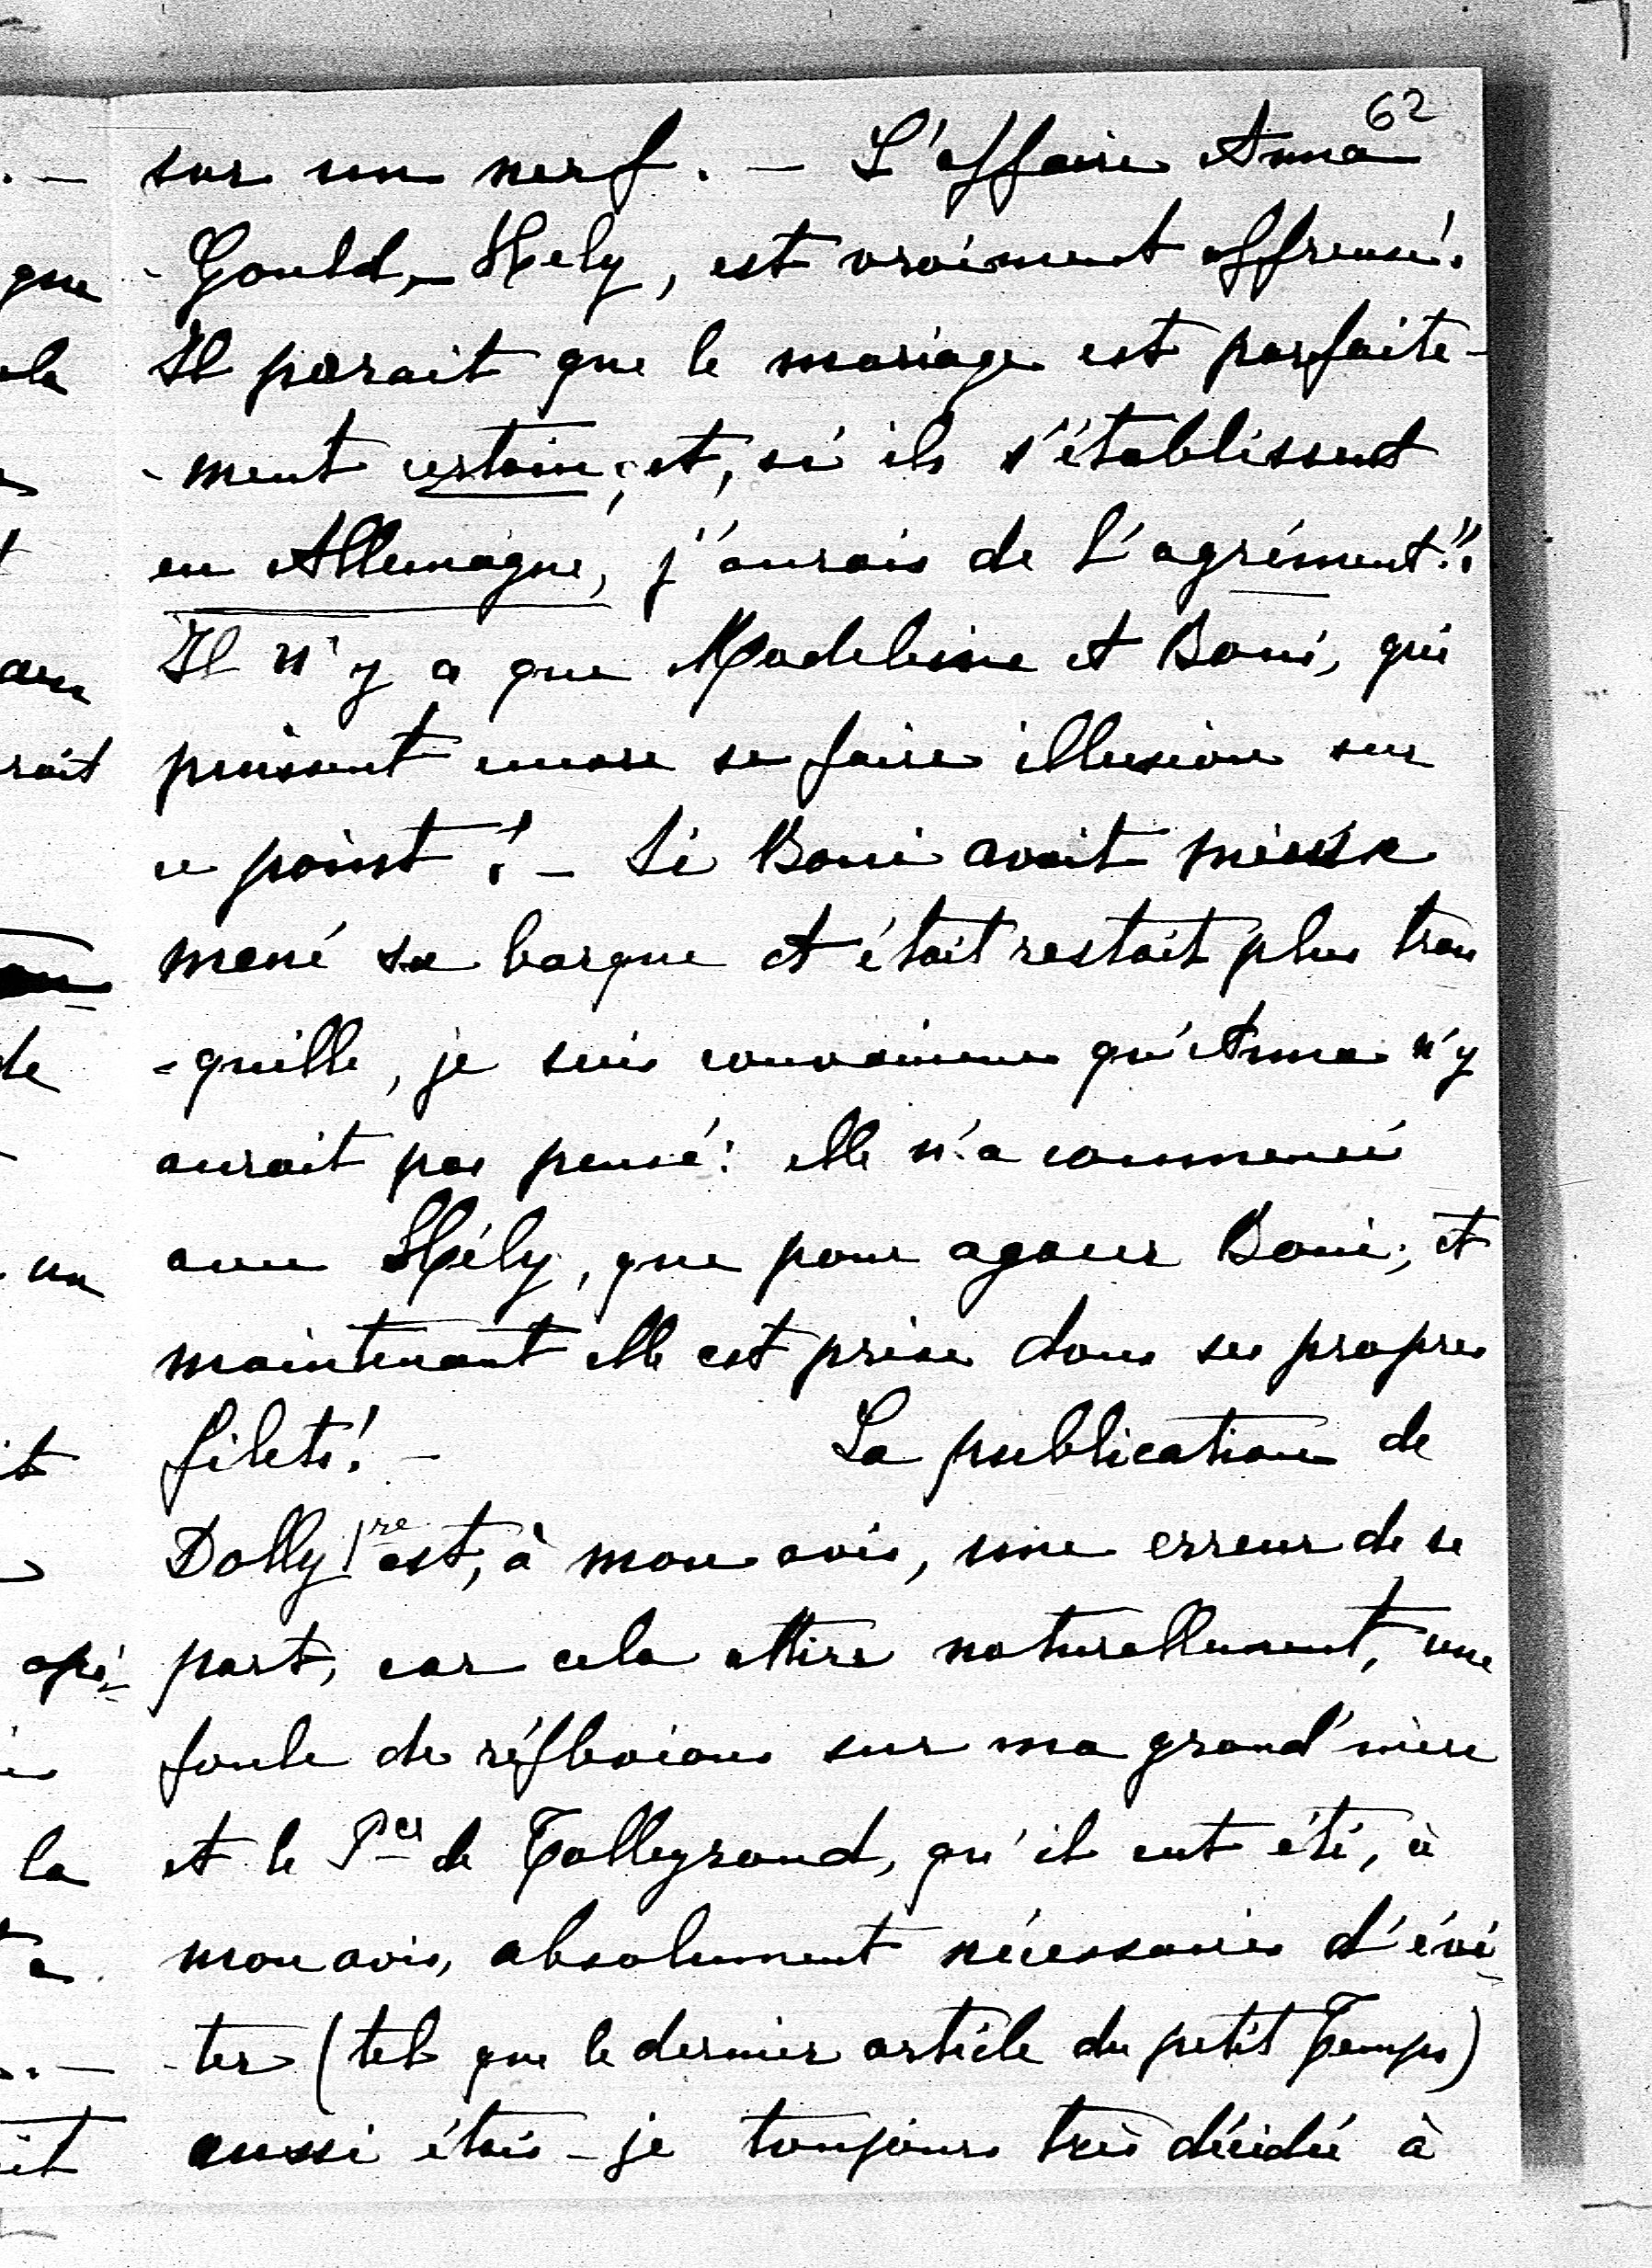 62
sur un nerf. — L'affaire Anna
- Gould, - Hely, est vraiment affreuse.
Il parait que le mariage est parfaite-
- ment certain; et, si ils s'établissent
en Allemagne, j'aurais de l'agrément!!
Il n'y a que Madeleine et Boni, qui
puissent encore se faire illusion sur
ce point! - Si Boni avait mieux
mené sa barque et était restait plus tran
- quille, je suis convaincue qu'Anna n'y
aurait pas pensé: elle n'a commencé
avec Hély, que pour agacer Boni; et
maintenant elle est prise dans ses propres
filets! - La publication de
Dolly 1re est, à mon avis, une erreur de se
part, car cela attire naturellement, une
foule de réflexions sur ma grand'mère
et le Pce de Talleyrand, qu'il eut été, à
mon avis, absolument nécessaire d'évi-
- ter (tel que le dernier article du petit Temps)
aussi étais-je toujours très décidée à